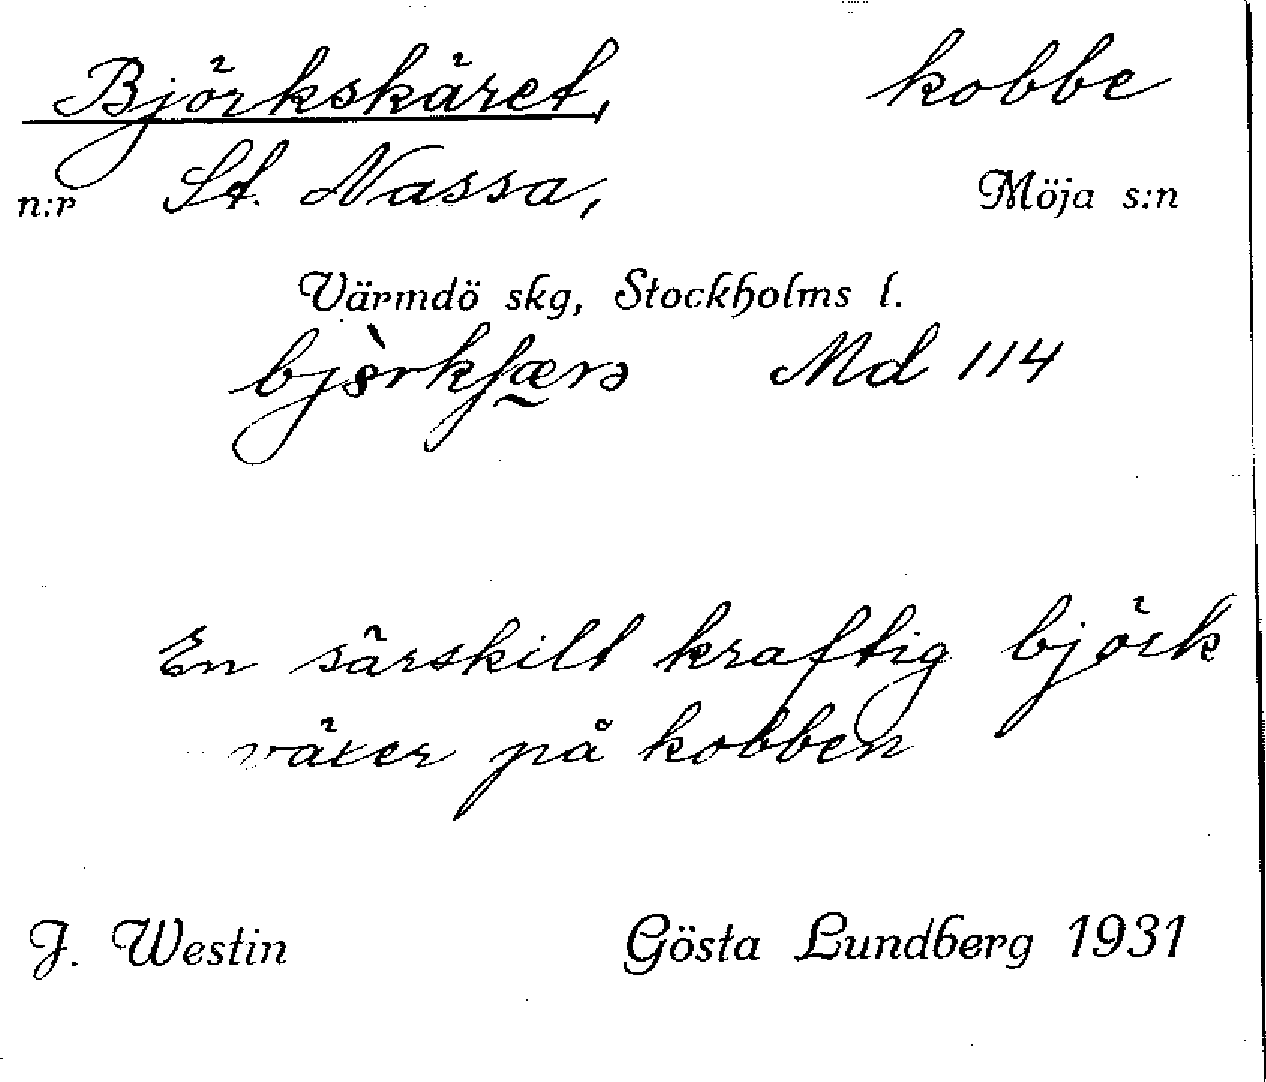 Björkskäret, kobbe
n:r St. Nassa, Möja s:n
Värmdö skg, Stockholms l.
Md 114
En särskilt kraftig björk
växer på kobben
J. Westin Gösta Lundberg 1931